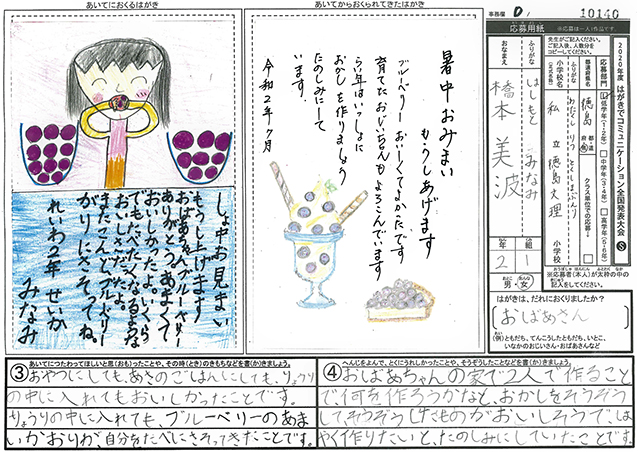 あいてにおくるはがき
しょ中お見まい
もうし上げます
おばあちゃんブルーベリー
ありがとう。あまくて
おいしかったよ。いくら
でもたべたくなるくらいな
おいしさだったよ。
またこんどブルーベリー
がりにさそってね。
れいわ2年 せいか
みなみ
あいてからおくられてきたはがき
暑中おみまい
もうしあげます
ブルーベリーおいしくてよかったです
育てたおじいちゃんもよろこんでいます
らい年はいっしょに
おかしを作りましょう
たのしみにして
います。
令和2年7月
事務欄
D
10140
応募用紙
※応募は一人1作品です。
先生がご記入ください。
ご記入後、人数分を
コピーしてください。
2020年度 はがきでコミュニケーション全国発表大会 S
応募部門
低学年(1・2年)
中学年(3・4年)
高学年(5・6年)
都道府県名
徳島
都・道
府・県
クラス単位での応募
ふりがな
小学校名
(正式名称)
私立徳島文理
小学校
ふりがな
はしもと みなみ
おなまえ
橋本 美波
年
2
組
1
男・女
※応募者(本人)が太枠の中の
記入をしてください。
はがきは、だれにおくりましたか?
おばあさん
(例)ともだち、てんこうしたともだち、いとこ、
いなかのおじいさん・おばあさんなど
③
あいてにつたわってほしいと思(おも)ったことや、その時(とき)のきもちなどを書(か)きましょう。
おやつにしても、あさのごはんにしても、りょうり
の中に入れてもおいしかったことです。
りょうりの中に入れても、ブルーベリーのあま
いかおりが、自分をたべにさそってきたことです。
④
へんじをよんで、とくにうれしかったことや、そうぞうしたことなどを書(か)きましょう。
おばあちゃんの家で2人で作ること
で、何を作ろうかなと、おかしをそうぞう
して、そうぞうしたものがおいしそうで、は
やく作りたいと、たのしみにしていたことです。